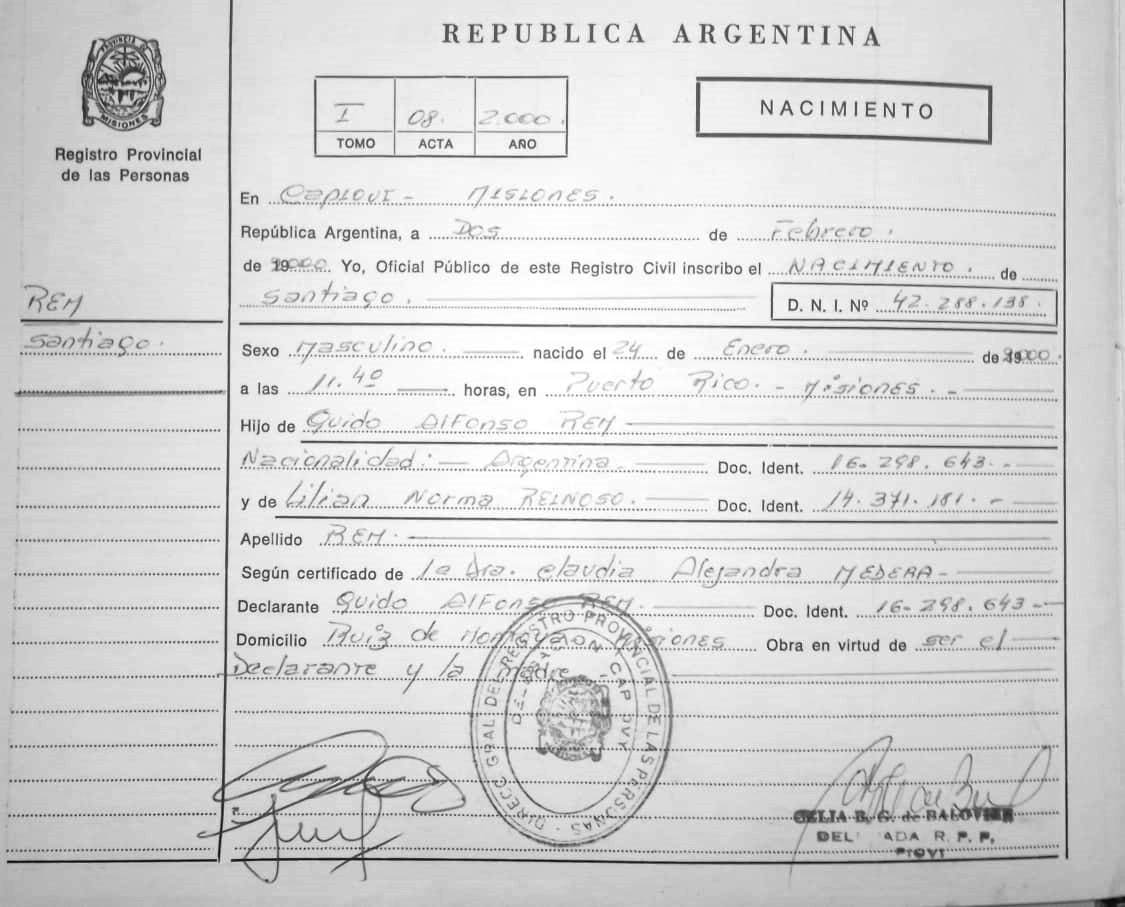 REPUBLICA ARGENTINA
PROVINCIA DE
MISIONES
Registro Provincial
de las Personas
I 08. 2.000.
TOMO ACTA AÑO
NACIMIENTO
REM
Santiago.
En Capiovi - Misiones.
República Argentina, a Dos de Febrero.
de 2000. Yo, Oficial Público de este Registro Civil inscribo el NACIMIENTO. de
Santiago. D. N. I. Nº 42.288.138.
Sexo Masculino. nacido el 24 de Enero. de 2000.
a las 11.40 horas, en Puerto Rico. - Misiones. -
Hijo de Guido Alfonso REM
Nacionalidad: - Argentina. Doc. Ident. 16.298.643.-
y de Lilian Norma REINOSO. Doc. Ident. 14.371.181.-
Apellido REM.
Según certificado de la Dra. Claudia Alejandra MEDERA-
Declarante Guido Alfonso REM. Doc. Ident. 16-298.643-
Domicilio Ruiz de Montoya Misiones Obra en virtud de ser el
Declarante y la madre
DIRECC. GRAL DEL REGISTRO PROVINCIAL DE LAS PERSONAS
CELIA B. G. de BALOVIER
DEL ADA R. P. P.
PIOVI